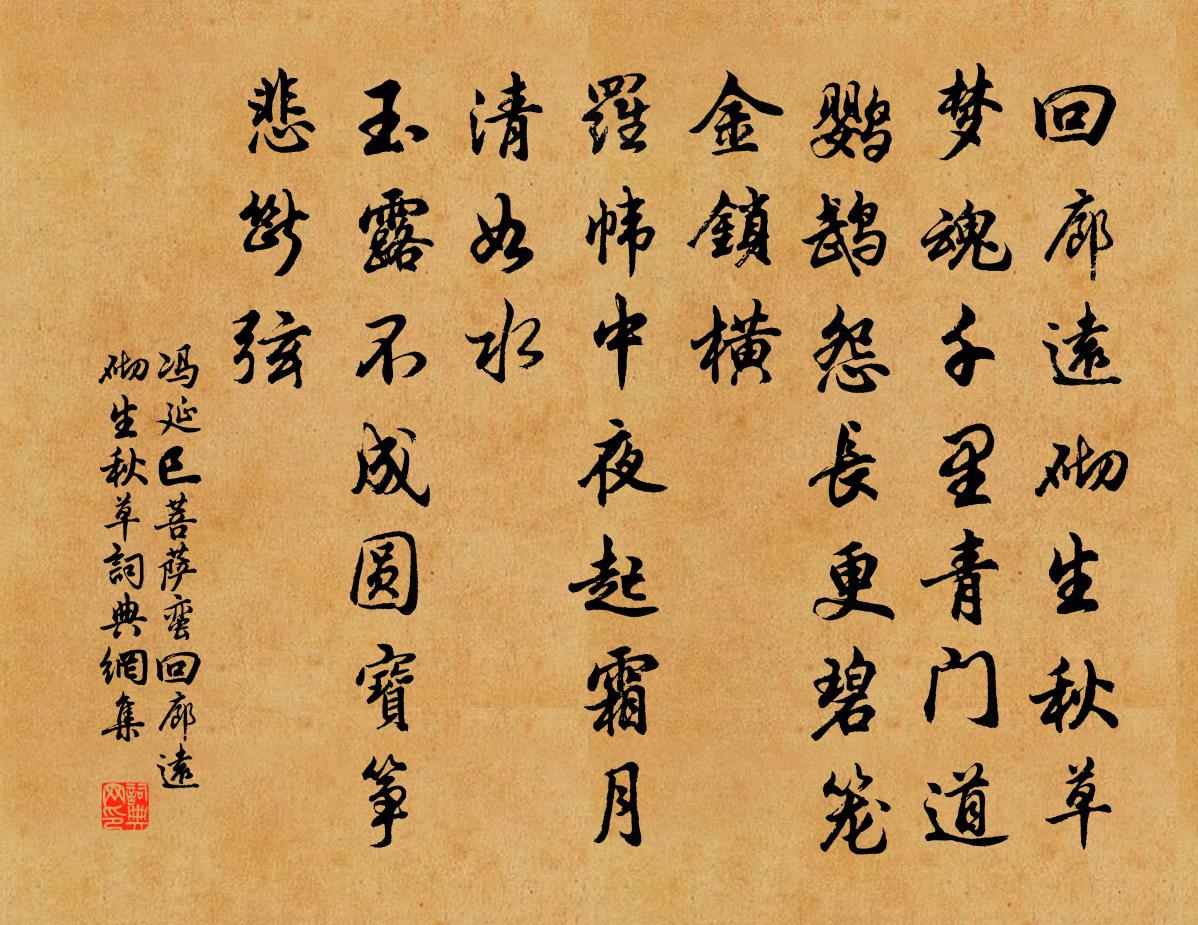 回廊遠砌生秋草
梦魂千里青门道
鹦鹉怨長更碧笼
金鎖橫
羅帏中夜起霜月
清如水
玉露不成圆寶筝
悲斷弦
冯延巳菩萨蛮回廊遠
砌生秋草詞典網集
詞典
网印